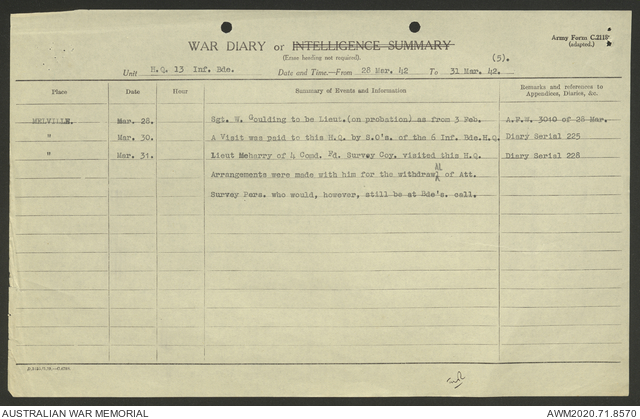 Army Form C.2118
(adapted.)
WAR DIARY or INTELLIGENCE SUMMARY
(Erase heading not required).
(5).
Unit H.Q. 13 Inf. Bde. Date and Time.—From 28 Mar. 42 To 31 Mar. 42.
Place Date Hour Summary of Events and Information Remarks and references to Appendices, Diaries, &c.
MELVILLE. Mar. 28. Sgt. W. Goulding to be Lieut.(on probation) as from 3 Feb. A.F.W. 3010 of 28 Mar.
" Mar. 30. A Visit was paid to this H.Q. by S.O's. of the 6 Inf. Bde.H.Q. Diary Serial 225
" Mar. 31. Lieut Meharry of 4 Comd. Fd. Survey Coy. visited this H.Q. Diary Serial 228
Arrangements were made with him for the withdrawAL of Att.
Survey Pers. who would, however, still be at Bde's. call.
AUSTRALIAN WAR MEMORIAL AWM2020.71.8570